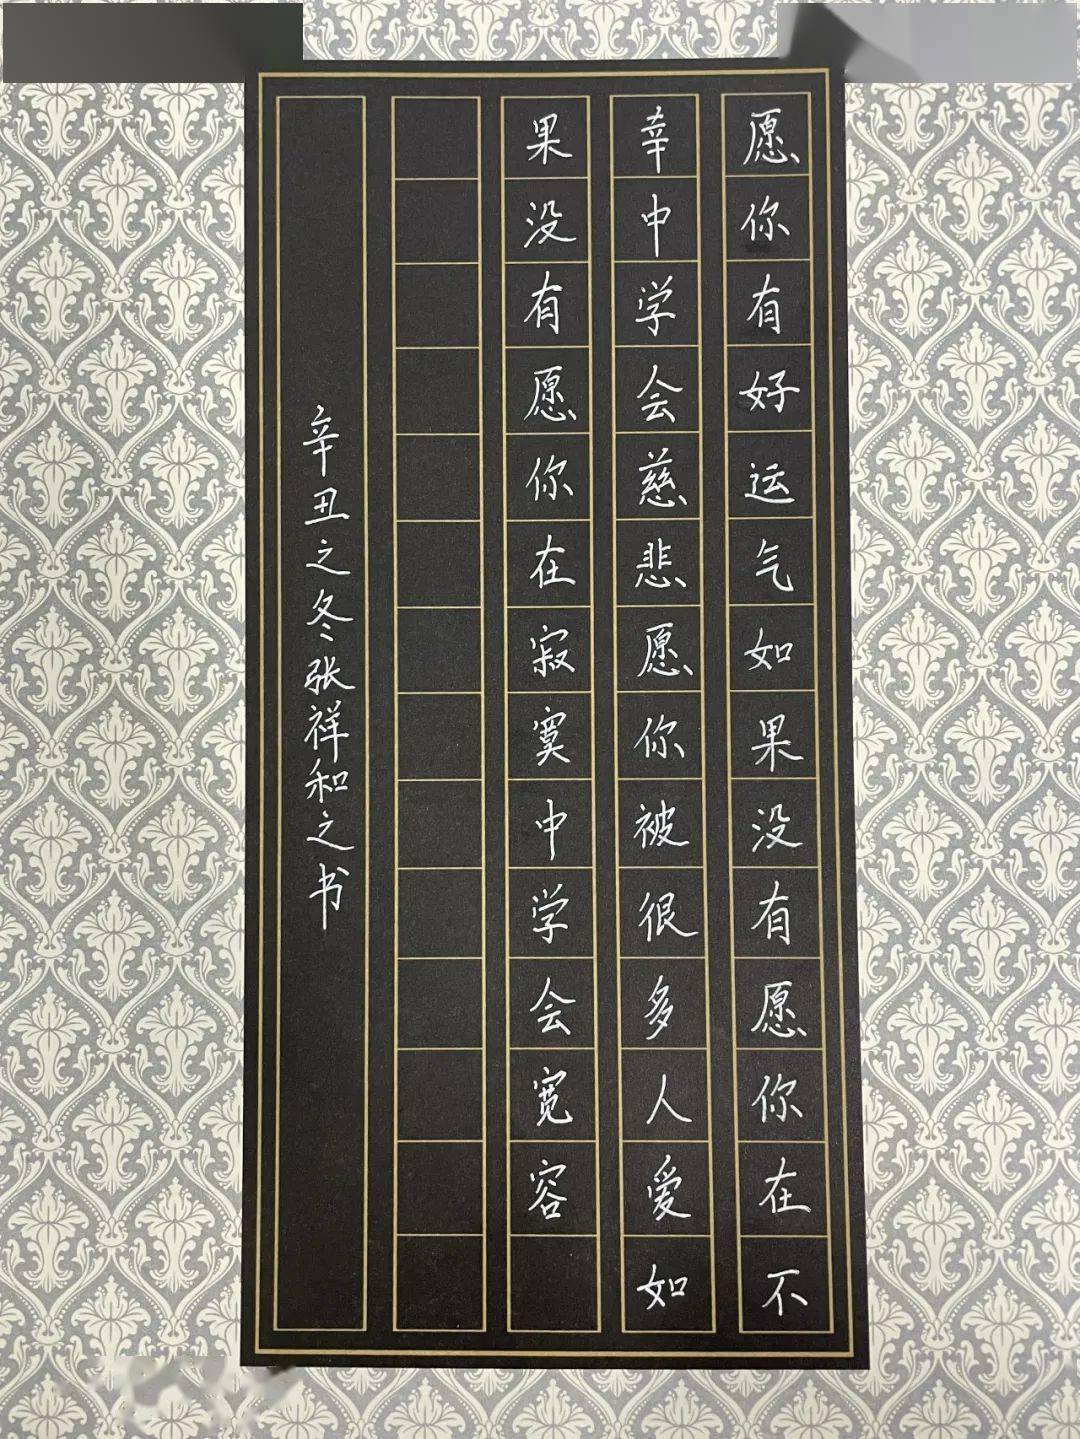 愿你有好运气如果没有愿你在不
幸中学会慈悲愿你被很多人爱如
果没有愿你在寂寞中学会宽容
辛丑之冬张祥和之书